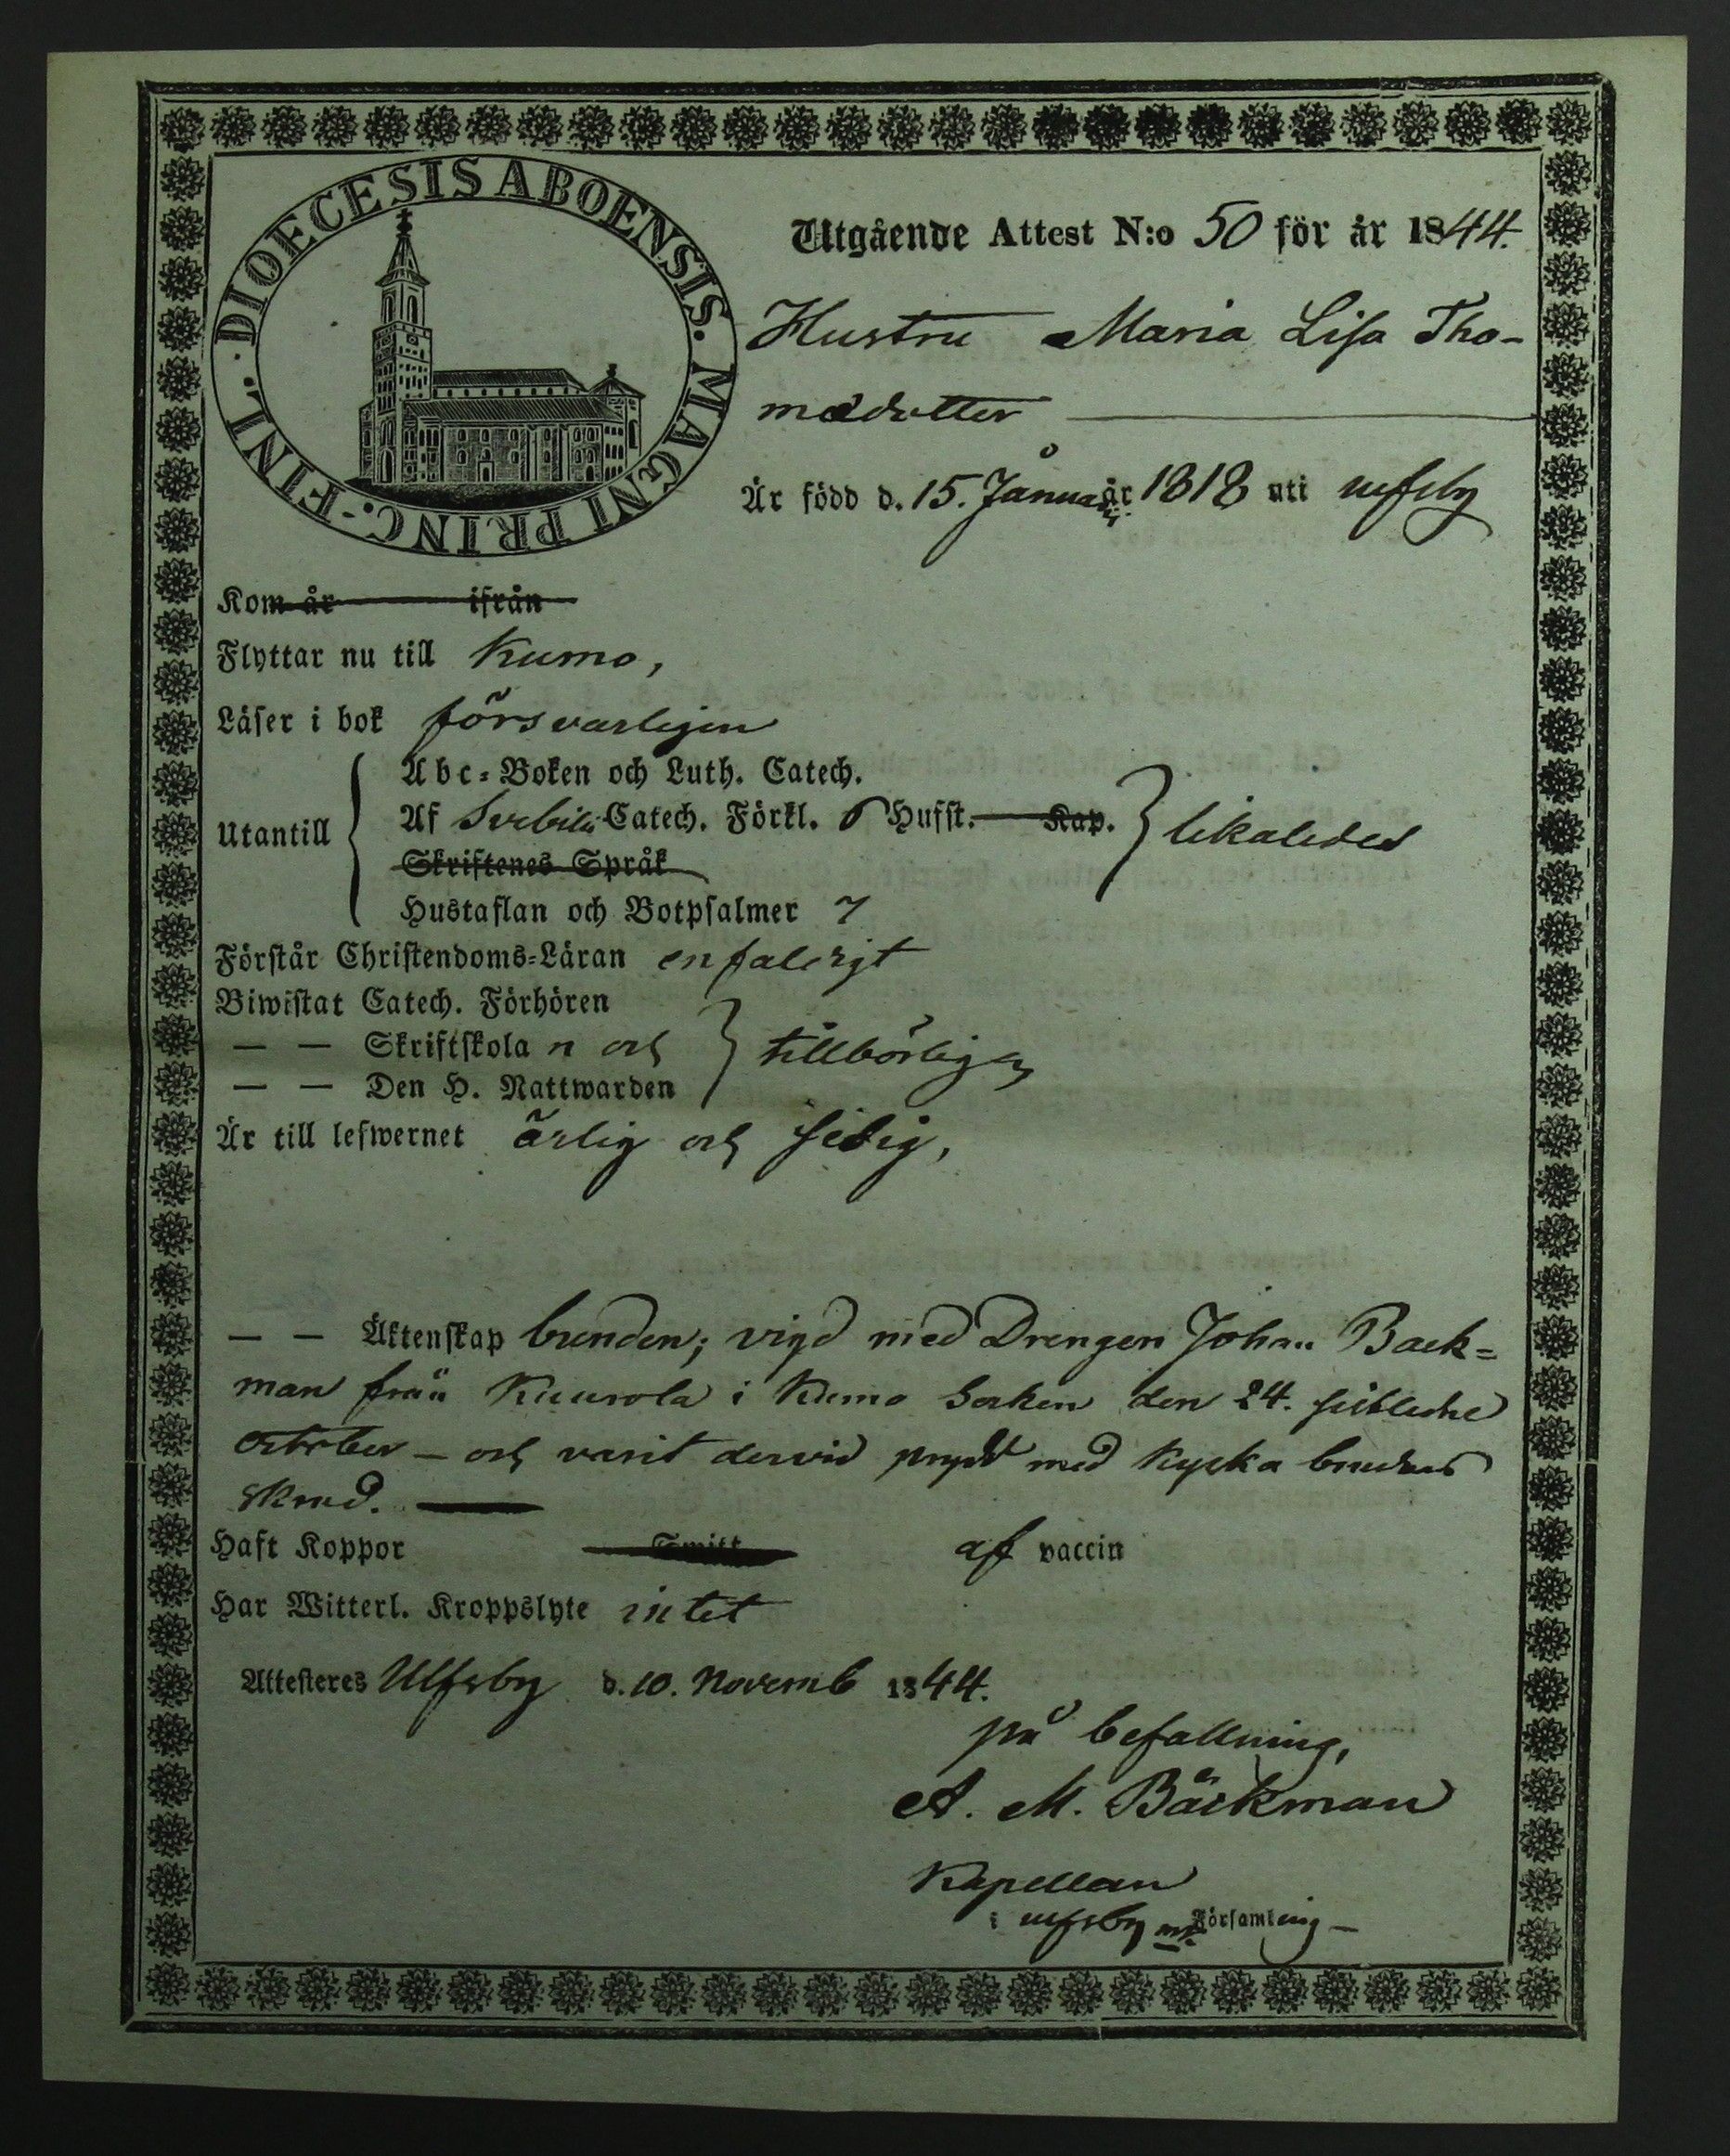 DIOECESIS ABOENSIS. MAGNI PRINC.-FINL.
Utgående Attest N:o 50 för år 1844.
Hustru Maria Lisa Tho-
masdotter
Är född d. 15. Januarii år 1818 uti Ulfsby
Kom år ifrån
Flyttar nu till Kumo,
Läser i bok försvarligen
Utantill
Abc-Boken och Luth. Catech.
Af Svebilii Catech. Förkl. 6 Hufst. Kap.
likaledes
Skriftenes Språk
Hustaflan och Botpsalmer 7
Förstår Christendoms-Läran enfaldigt
Biwistat Catech. Förhören
— — Skriftskolan och
tillbörligen
— — Den H. Nattwarden
Är till lefwernet ärlig och sedig,
— — Äktenskap bunden; vigd med Drengen Johan Back-
man från Kuurola i Kumo Socken den 24. sistledne
october — och varit dervid prydd med Kyska brudars
skrud.
Haft Koppor Smitt af vaccin
Har Witterl. Kroppslyte intet
Attesteres Ulfsby d. 10. Novemb 1844.
på befallning,
A. M. Bäckman
Kapellan
i Ulfsby Församling